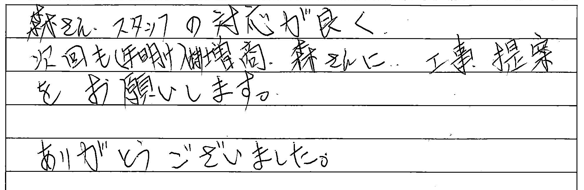 森さん、スタッフの対応が良く、
次回も(年明け)増高、森さんに、工事提案
をお願いします。
ありがとうございました。